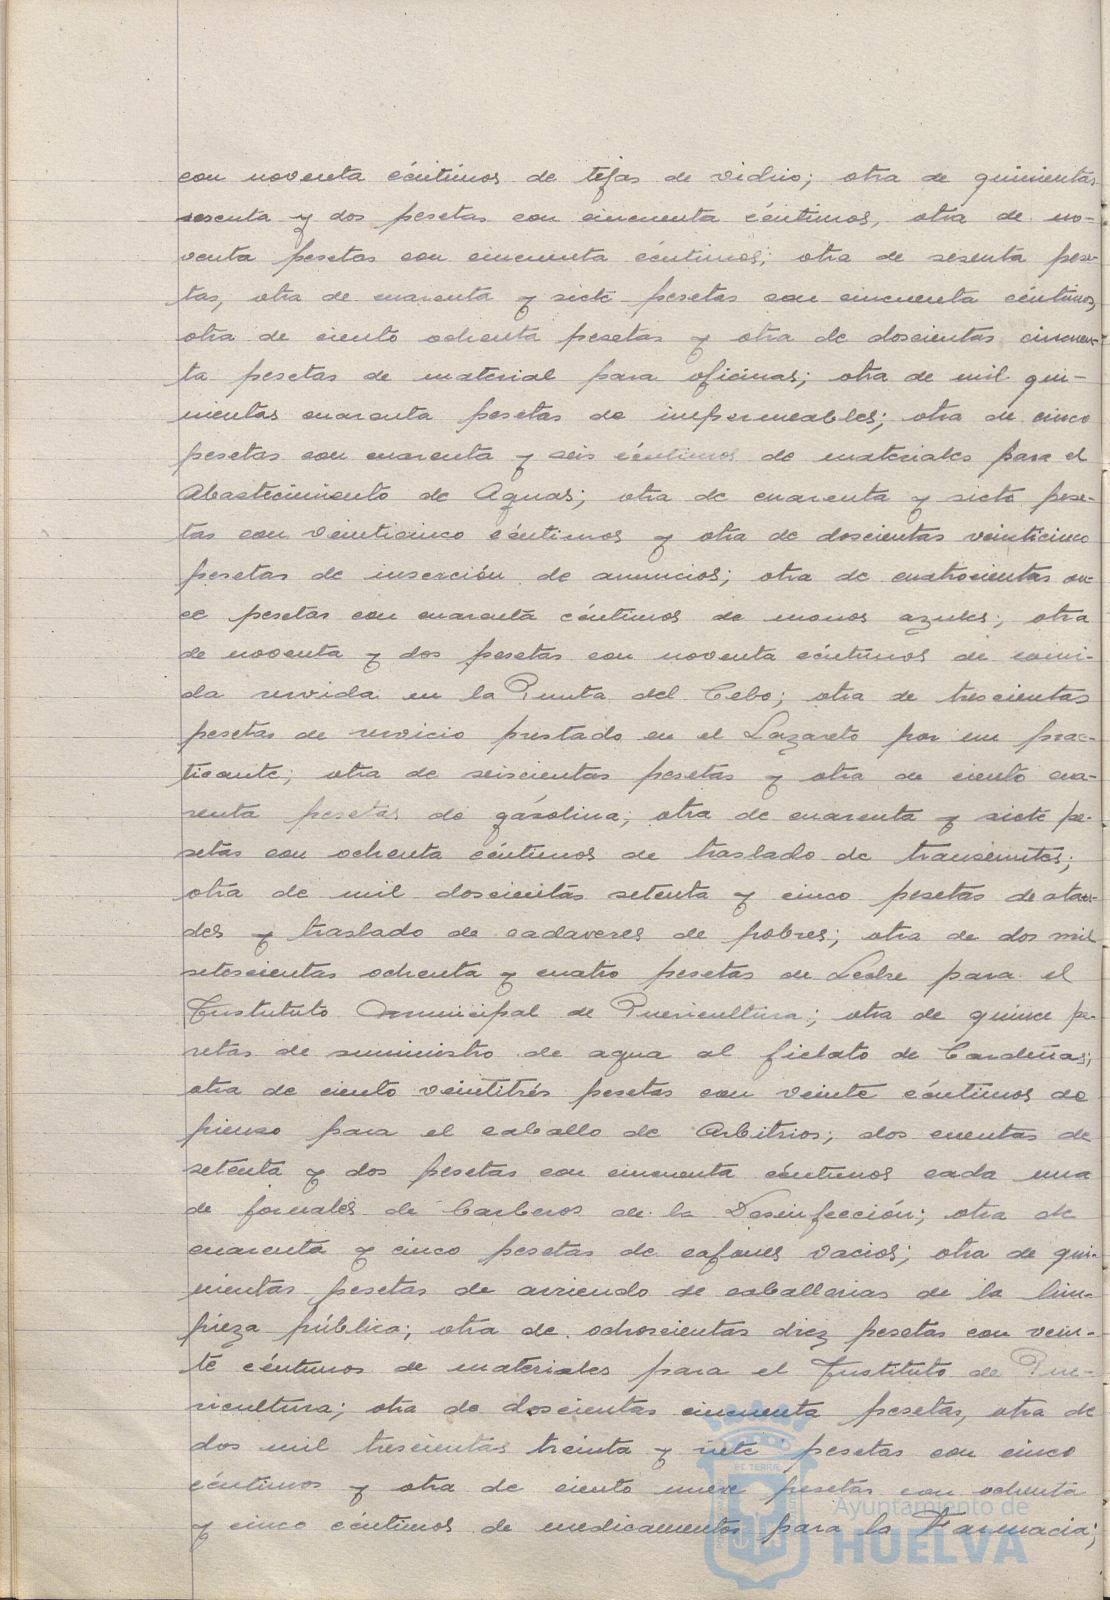 con noventa céntimos de tejas de vidrio; otra de quinientas
sesenta y dos pesetas con cincuenta céntimos, otra de no-
venta pesetas con cincuenta céntimos; otra de sesenta pese-
tas, otra de cuarenta y siete pesetas con cincuenta céntimos,
otra de ciento ochenta pesetas y otra de doscientas cincuen-
ta pesetas de material para oficinas; otra de mil qui-
nientas cuarenta pesetas de impermeables; otra de cinco
pesetas con cuarenta y seis céntimos de materiales para el
Abastecimiento de Aguas; otra de cuarenta y siete pese-
tas con veinticinco céntimos y otra de doscientas veinticinco
pesetas de inserción de anuncios; otra de cuatrocientas on-
ce pesetas con cuarenta céntimos de monos azules; otra
de noventa y dos pesetas con noventa céntimos de comi-
da servida en la Punta del Cebo; otra de trescientas
pesetas de servicio prestado en el Lazareto por un prac-
ticante; otra de seiscientas pesetas y otra de ciento cua-
renta pesetas de gasolina; otra de cuarenta y siete pe-
setas con ochenta céntimos de traslado de transeuntes;
otra de mil doscientas setenta y cinco pesetas de ataú-
des y traslado de cadaveres de pobres; otra de dos mil
setescientas ochenta y cuatro pesetas de Leche para el
Instituto Municipal de Puericultura; otra de quince pe-
setas de suministro de agua al fielato de Cardeñas;
otra de ciento veintitrés pesetas con veinte céntimos de
pienso para el caballo de Arbitrios; dos cuentas de
setenta y dos pesetas con cincuenta céntimos cada una
de jornales de barberos de la Desinfección; otra de
cuarenta y cinco pesetas de cajones vacios; otra de qui-
nientas pesetas de arriendo de caballerias de la lim-
pieza pública; otra de ochocientas diez pesetas con vein-
te céntimos de materiales para el Instituto de Pue-
ricultura; otra de doscientas cincuenta pesetas, otra de
dos mil trescientas treinta y siete pesetas con cinco
céntimos y otra de ciento nueve pesetas con ochenta
y cinco céntimos de medicamentos para la Farmacia;
Ayuntamiento de
HUELVA